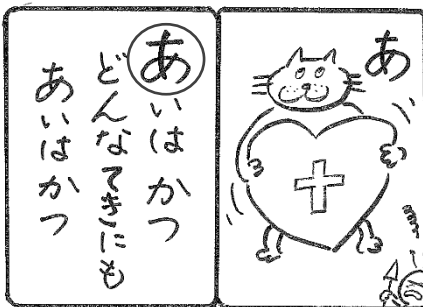 あいはかつ
どんなてきにも
あいはかつ
あ